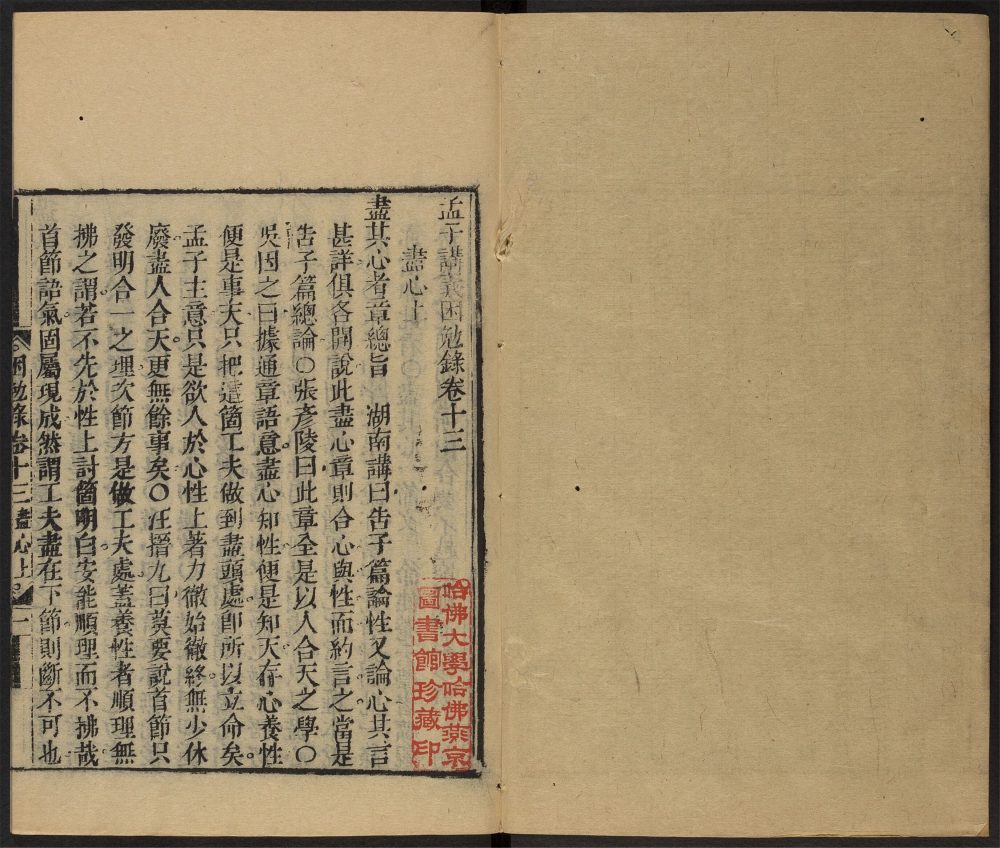 孟子講義困勉錄卷十三
盡心上
盡其心者章總旨　湖南講曰告子篇論性又論心其言
甚詳俱各開說此盡心章則合心與性而約言之當是
告子篇總論〇張彥陵曰此章全是以人合天之學〇
吳因之曰據通章語意盡心知性便是知天存心養性
便是事天只把這箇工夫做到盡頭處即所以立命矣
孟子主意只是欲人於心性上著力徹始徹終無少休
廢盡人合天更無餘事矣〇汪搢九曰莫要說首節只
發明合一之理次節方是做工夫處蓋養性者順理無
拂之謂若不先於性上討箇明白安能順理而不拂哉
首節語氣固屬現成然謂工夫盡在下節則斷不可也
困勉錄卷十三 盡心上 一
哈佛大學哈佛燕京
圖書館珍藏印